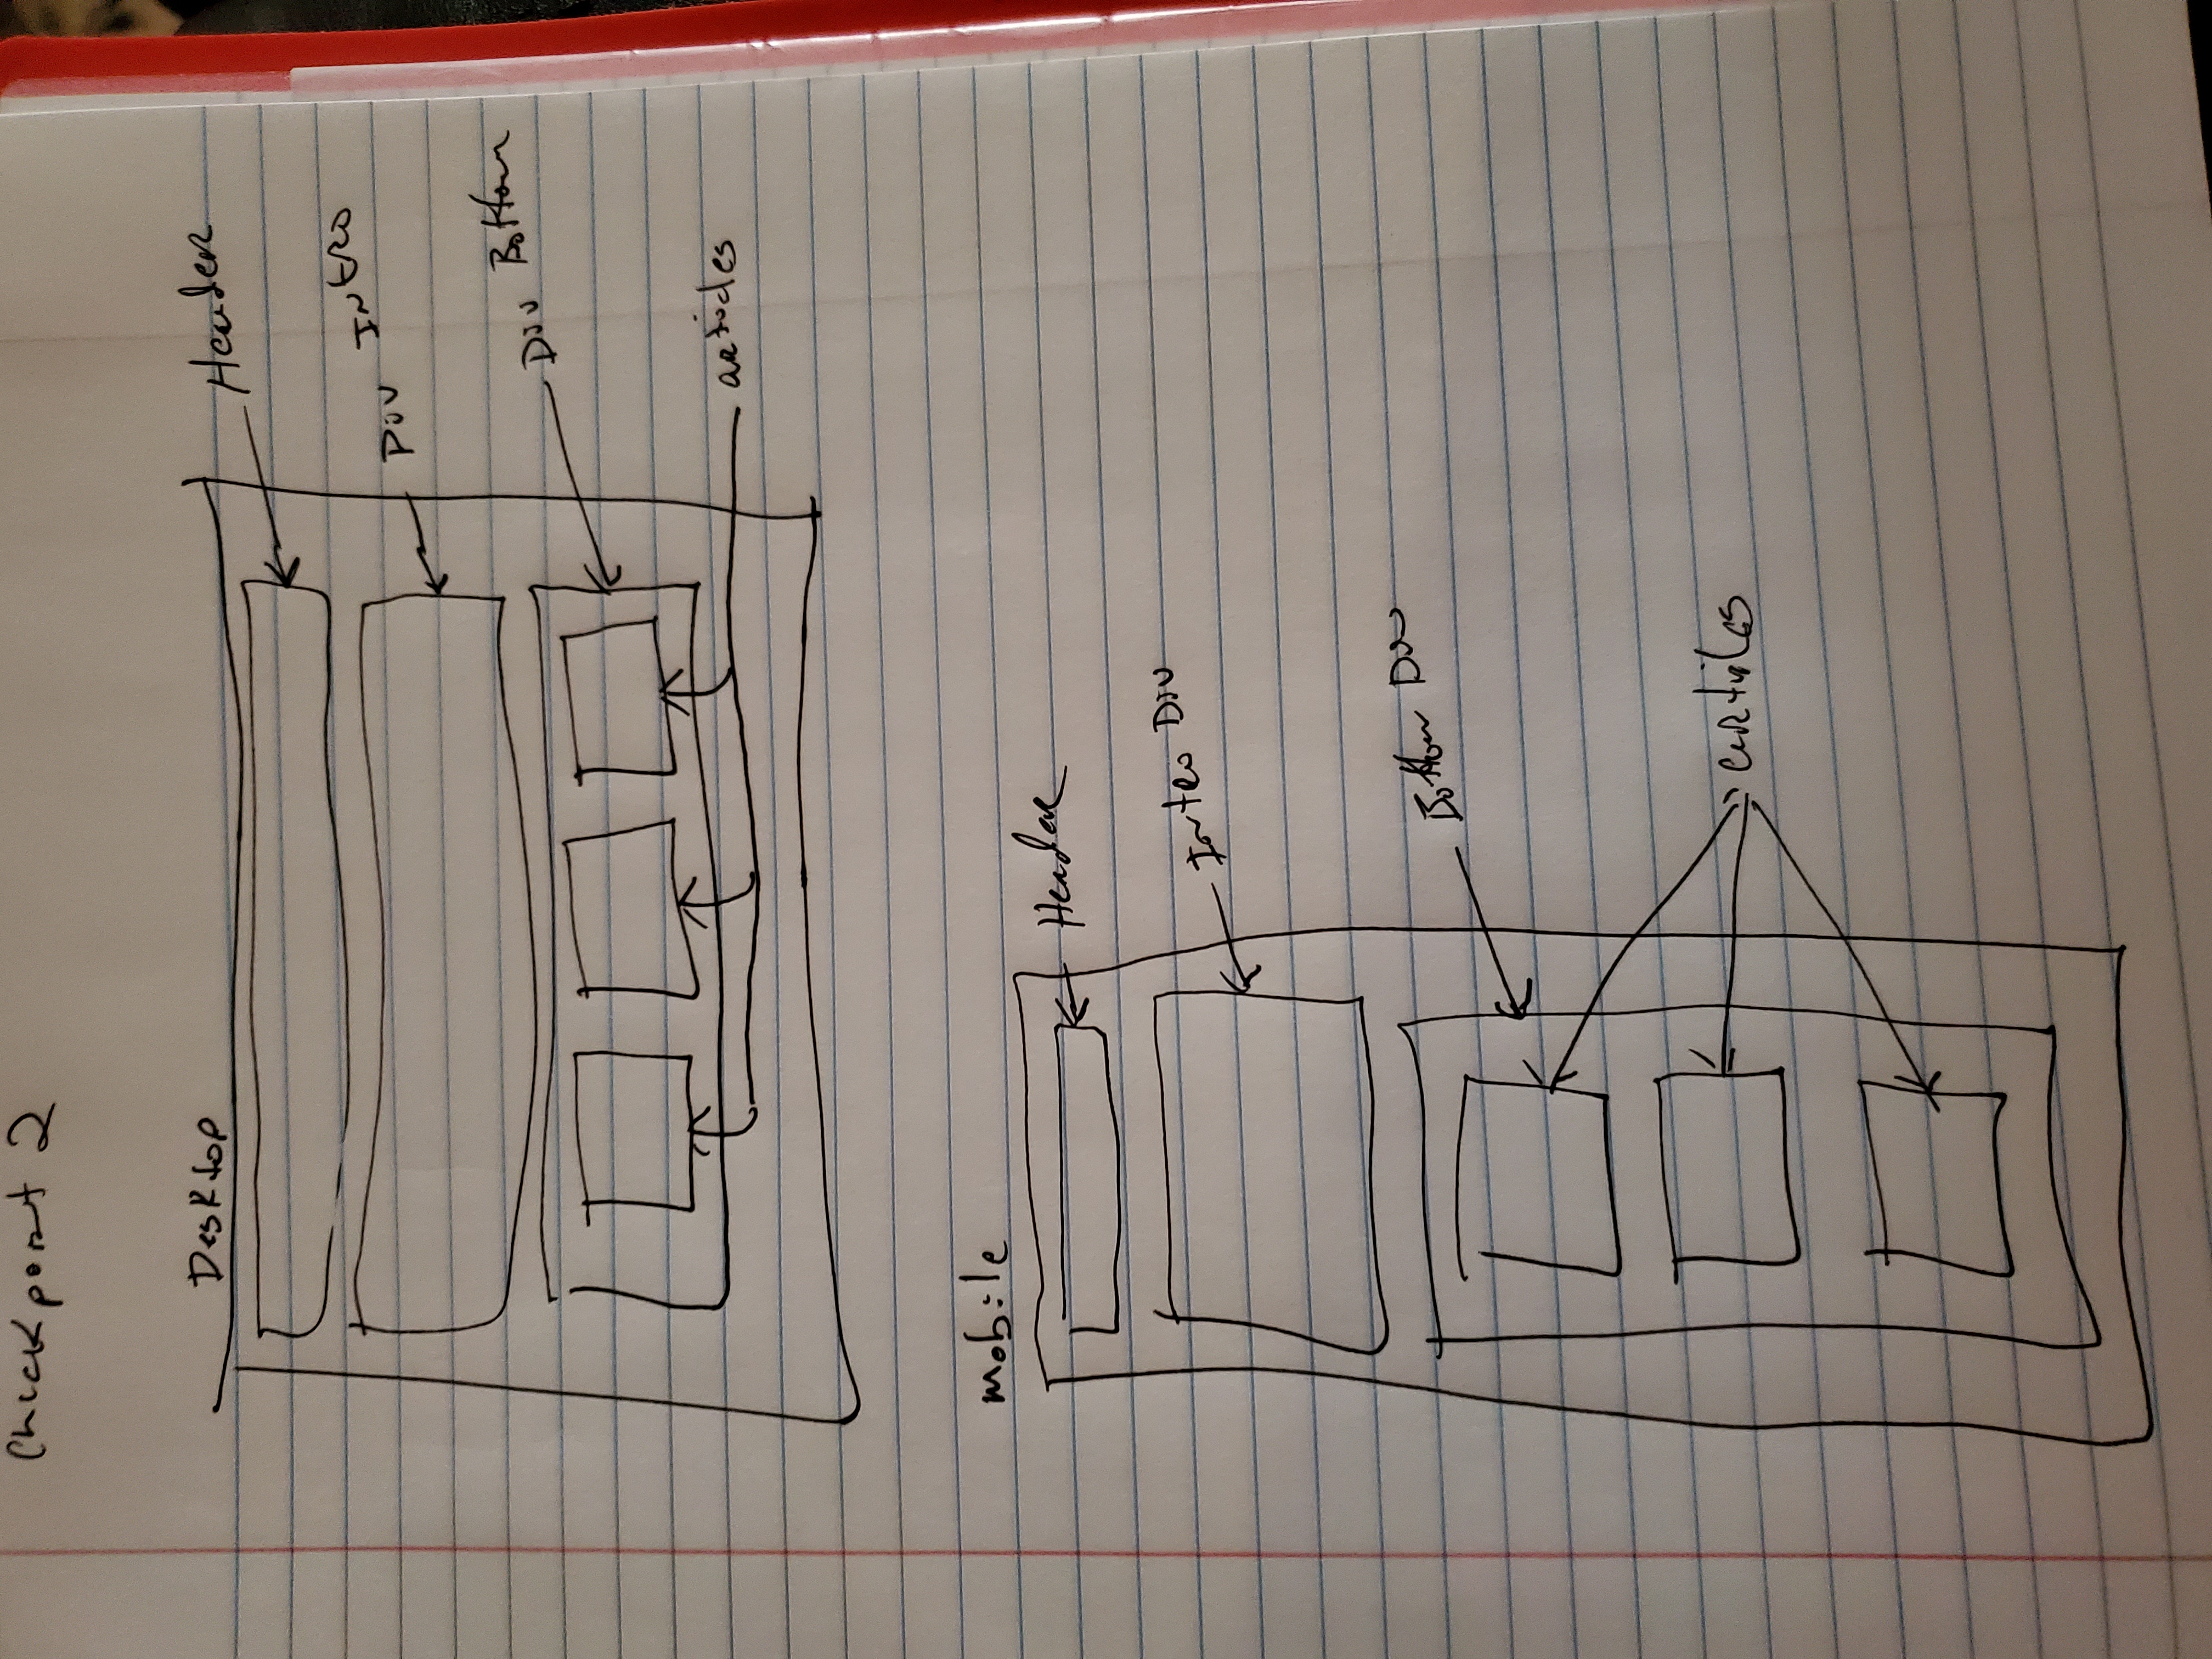 Checkpoint 2
Desktop
Header
Div Intro
Div Bottom
articles
mobile
Header
Intro Div
Bottom Div
articles